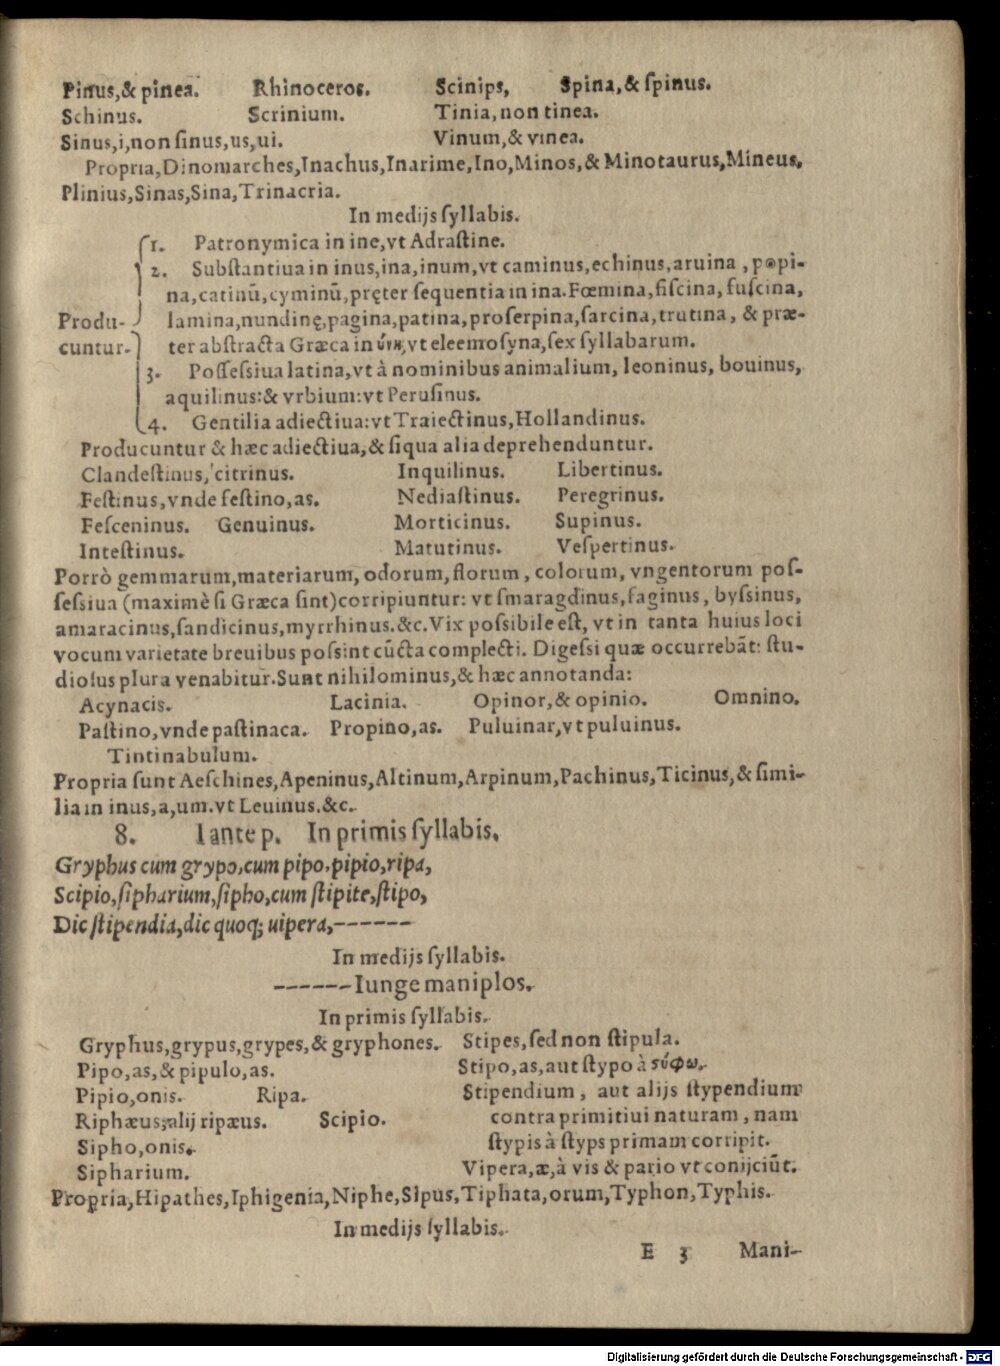 Pinus,& pinea. Rhinoceros. Scinips, Spina,& ſpinus.
Schinus. Scrinium. Tinia, non tinea.
Sinus,i,non ſinus,us,ui. Vinum,& vinea.
Propria,Dinomarches,Inachus,Inarime,Ino,Minos,& Minotaurus,Mineus,
Plinius,Sinas,Sina,Trinacria.
In medijs ſyllabis.
1. Patronymica in ine,vt Adraſtine.
2. Subſtantiua in inus,ina,inum,vt caminus,echinus,aruina , popi-
na,catinū,cyminū,pręter ſequentia in ina.Fœmina,fiſcina, fuſcina,
Produ- lamina,nundinę,pagina,patina,proſerpina,ſarcina,trutina, & præ-
cuntur. ter abſtracta Græca in ύνη,vt eleemoſyna,ſex ſyllabarum.
3. Poſſeſsiua latina,vt à nominibus animalium, leoninus, bouinus,
aquilinus:& vrbium:vt Peruſinus.
4. Gentilia adiectiua:vt Traiectinus,Hollandinus.
Producuntur & hæc adiectiua,& ſiqua alia deprehenduntur.
Clandeſtinus, citrinus. Inquilinus. Libertinus.
Feſtinus,vnde feſtino,as. Nediaſtinus. Peregrinus.
Feſceninus. Genuinus. Morticinus. Supinus.
Inteſtinus. Matutinus. Veſpertinus.
Porrò gemmarum,materiarum, odorum, florum , colorum, vngentorum poſ-
ſeſsiua (maximè ſi Græca ſint)corripiuntur: vt ſmaragdinus,faginus, byſsinus,
amaracinus,ſandicinus,myrrhinus.&c.Vix poſsibile eſt, vt in tanta huius loci
vocum varietate breuibus poſsint cūcta complecti. Digeſsi quæ occurrebāt: ſtu-
dioſus plura venabitur.Sunt nihilominus,& hæc annotanda:
Acynacis. Lacinia. Opinor,& opinio. Omnino.
Paſtino,vnde paſtinaca. Propino,as. Puluinar,vt puluinus.
Tintinabulum.
Propria ſunt Aeſchines,Apeninus,Altinum,Arpinum,Pachinus,Ticinus,& ſimi-
lia in inus,a,um.vt Leuinus.&c.
8. I ante p. In primis ſyllabis.
Gryphus cum grypo,cum pipo.pipio,ripa,
Scipio,ſipharium,ſipho,cum ſtipite,ſtipo,
Dic ſtipendia,dic quoq; uipera,------
In medijs ſyllabis.
------Iunge maniplos.
In primis ſyllabis.
Gryphus,grypus,grypes,& gryphones. Stipes, ſed non ſtipula.
Pipo,as,& pipulo,as. Stipo,as,aut ſtypo à ςύφω.
Pipio,onis. Ripa. Stipendium , aut alijs ſtypendium
Riphæus,alij ripæus. Scipio. contra primitiui naturam , nam
Sipho,onis. ſtypis à ſtyps primam corripit.
Sipharium. Vipera,æ,à vis & pario vt conijciūt.
Propria,Hipathes,Iphigenia,Niphe,Sipus,Tiphata,orum,Typhon,Typhis.
In medijs ſyllabis.
E 3 Mani-
Digitalisierung gefördert durch die Deutsche Forschungsgemeinschaft - DFG